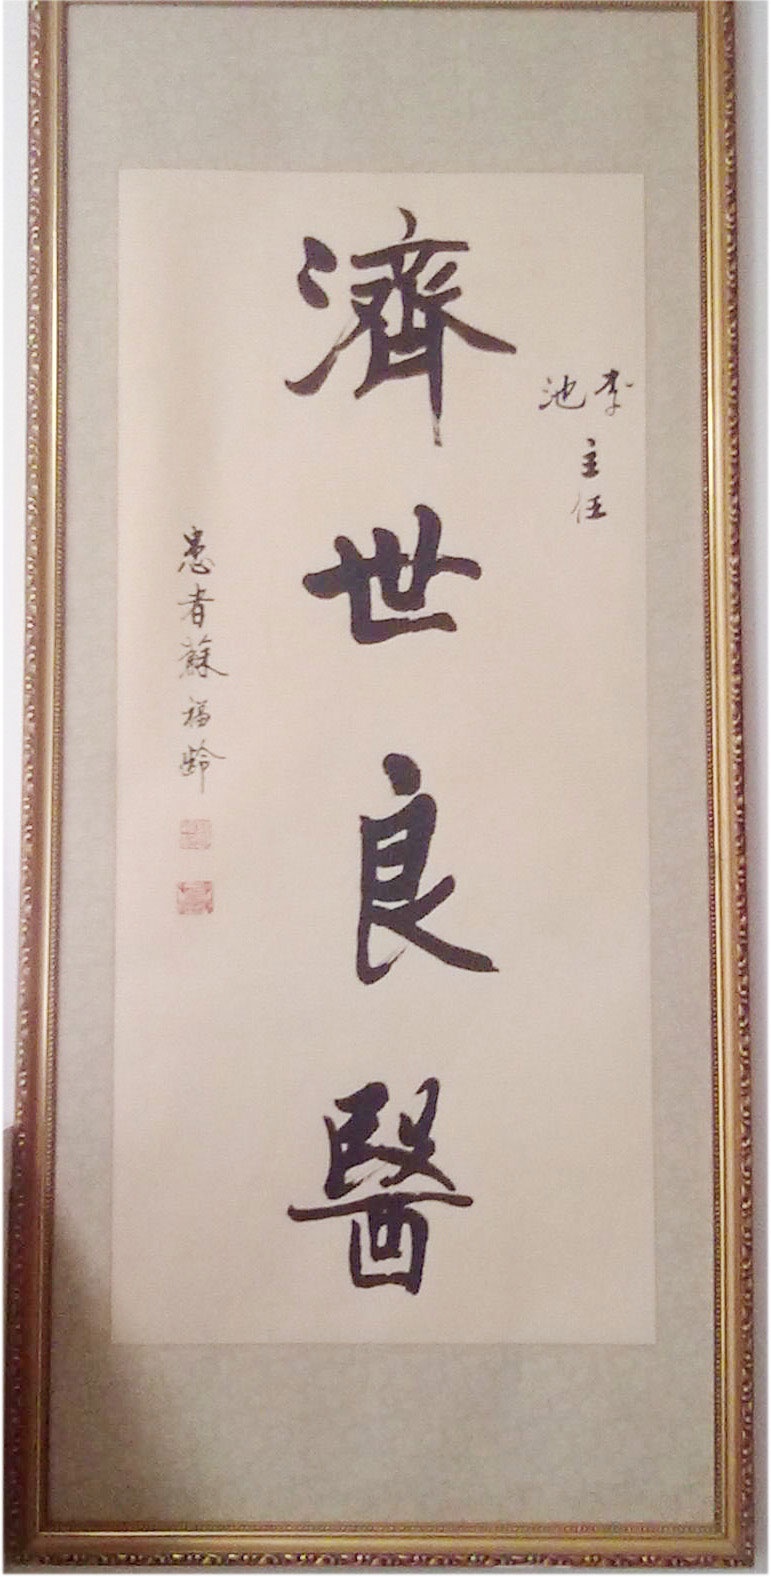 李
池
主任
濟世良醫
患者蘇福齡